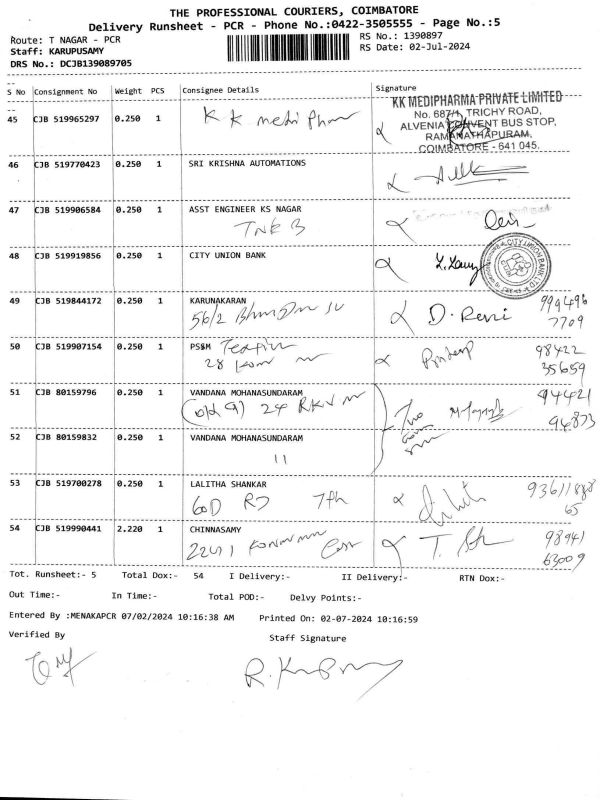 THE PROFESSIONAL COURIERS, COIMBATORE
Delivery Runsheet - PCR - Phone No.:0422-3505555 - Page No.:5
Route: T NAGAR - PCR
RS No.: 1390897
Staff: KARUPUSAMY
RS Date: 02-Jul-2024
DRS No.: DCJB139089705
S No Consignment No Weight PCS Consignee Details Signature
45 CJB 519965297 0.250 1 KK medi Phar
KK MEDIPHARMA PRIVATE LIMITED
No. 687/1, TRICHY ROAD,
ALVENIA CONVENT BUS STOP,
RAMANATHAPURAM,
COIMBATORE - 641 045.
46 CJB 519770423 0.250 1 SRI KRISHNA AUTOMATIONS
47 CJB 519906584 0.250 1 ASST ENGINEER KS NAGAR
TNEB
48 CJB 519919856 0.250 1 CITY UNION BANK
CITY UNION BANK LTD
49 CJB 519844172 0.250 1 KARUNAKARAN
56/2
D. Reni 999496
7709
50 CJB 519907154 0.250 1 PS&M
28
Pradeep 98422
35659
51 CJB 80159796 0.250 1 VANDANA MOHANASUNDARAM
(old 9) 24 RKV
94421
94873
52 CJB 80159832 0.250 1 VANDANA MOHANASUNDARAM
11
53 CJB 519700278 0.250 1 LALITHA SHANKAR
60D RJ 7th
93611888
65
54 CJB 519990441 2.220 1 CHINNASAMY
East
98941
63009
Tot. Runsheet:- 5 Total Dox:- 54 I Delivery:- II Delivery:- RTN Dox:-
Out Time:- In Time:- Total POD:- Delvy Points:-
Entered By :MENAKAPCR 07/02/2024 10:16:38 AM Printed On: 02-07-2024 10:16:59
Verified By Staff Signature